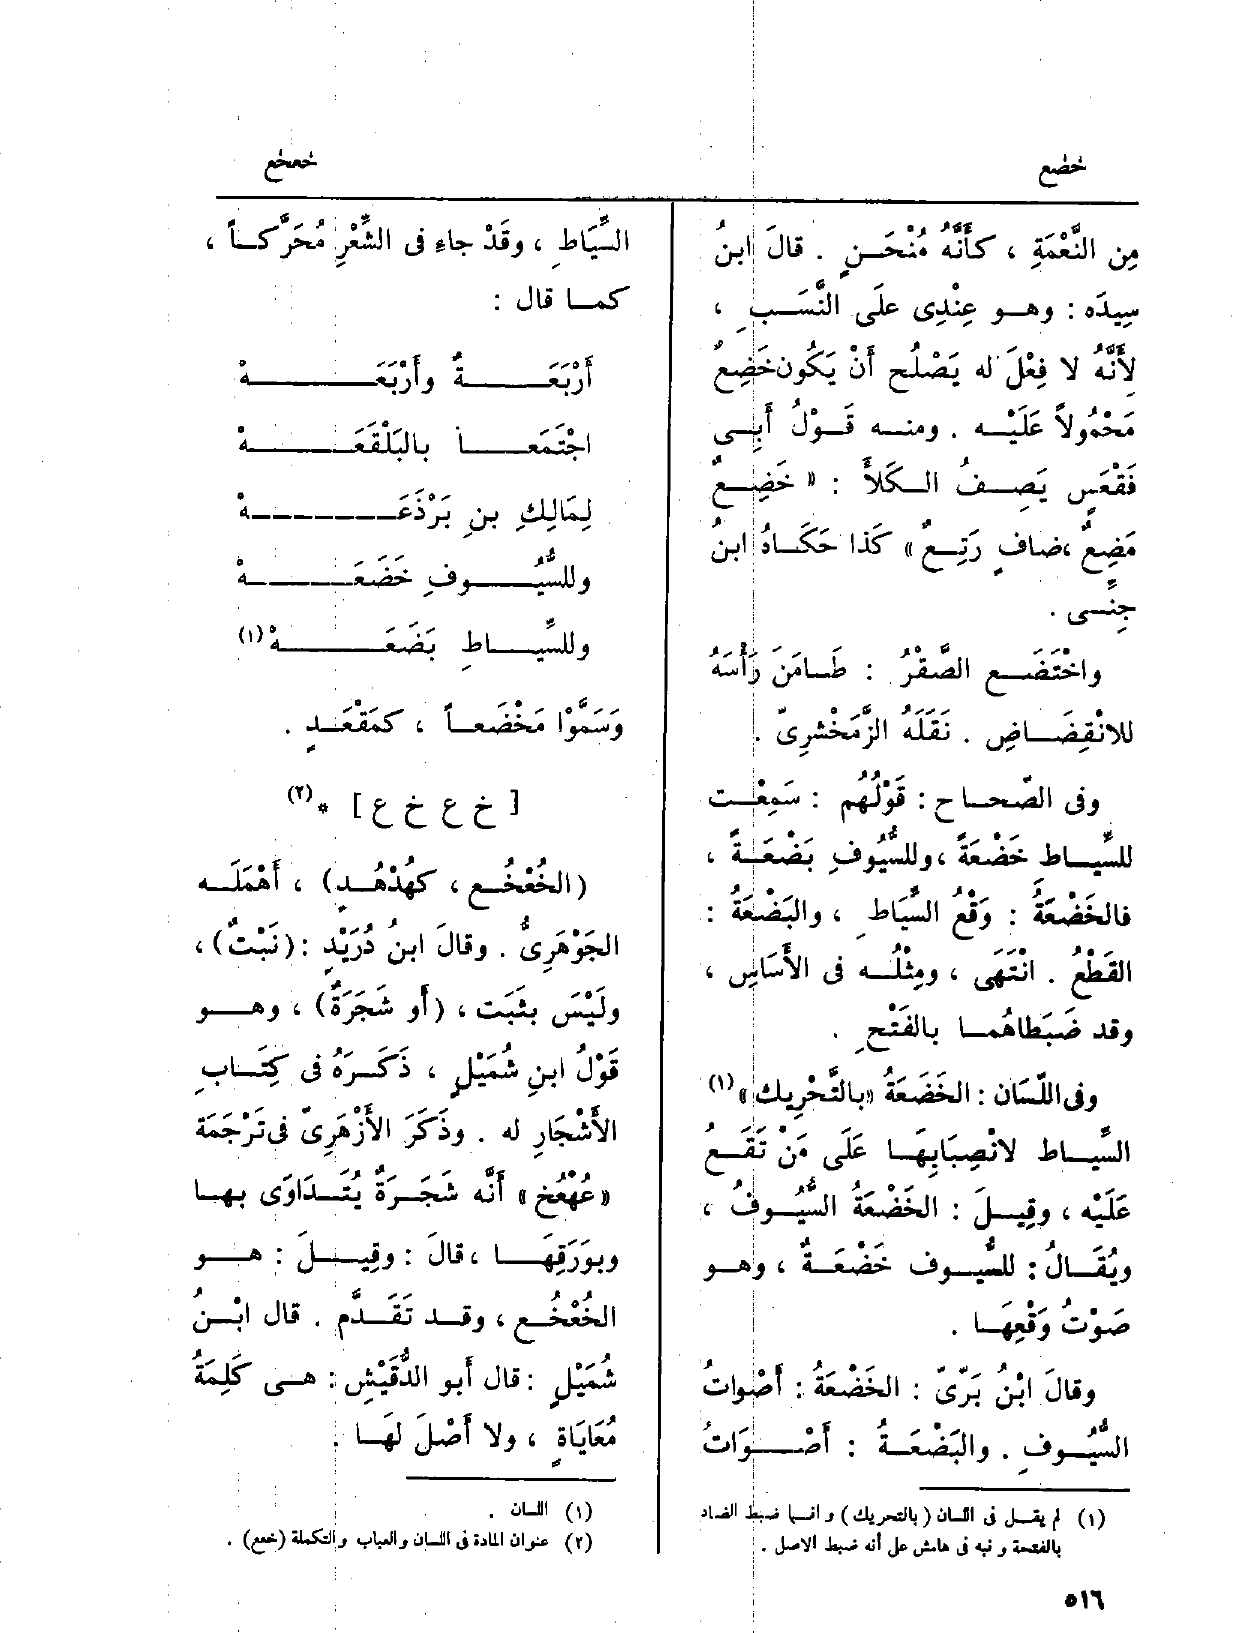 خضع
خعخع
مِن النَّعْمَةِ ، كأَنَّهُ مُنْحَنٍ . قالَ ابنُ
سِيدَه : وهو عِنْدِى علَى النَّسَبِ ،
لأَنَّهُ لا فِعْلَ له يَصْلُح أَنْ يَكُون خَضِعٌ
مَحْمُولاً عَلَيْه . ومنه قَوْلُ أَبِى
فَقْعَسٍ يَصِفُ الكَلأَ : « خَضِعٌ
مَضِعٌ ، ضافٍ رَتِعٌ » كَذا حَكَاهُ ابنُ
جِنِّى .
واخْتَضَع الصَّقْرُ : طَامَنَ رَأْسَهُ
للانْقِضَاضِ . نَقَلَهُ الزَّمَخْشرِىّ .
وفى الصّحاح : قَوْلُهُم : سَمِعْت
للسِّيَاطِ خَضْعَةً ، وللسُّيُوفِ بَضْعَةً ،
فالخَضْعَةُ : وَقْعُ السِّيَاطِ ، والبَضْعَةُ :
القَطْعُ . انْتَهَى ، ومِثْلُه فى الأَسَاسِ ،
وقد ضَبَطاهُما بالفَتْحِ .
وفى اللِّسَان : الخَضَعَةُ «بالتَّحْرِيك» (١)
السِّيَاط لانْصِبَابِهَا عَلَى مَنْ تَقَعُ
عَلَيْه ، وقِيلَ : الخَضْعَةُ السُّيُوفُ ،
ويُقَالُ : للسُّيوف خَضْعَةٌ ، وهو
صَوْتُ وَقْعِهَا .
وقالَ ابْنُ بَرِّىّ : الخَضْعَةُ : أَصْوَاتُ
السُّيُوفِ . والبَضْعَةُ : أَصْوَاتُ
(١) لم يقل فى اللسان (بالتحريك) وانما ضبط الضاد
بالفتحة ونبه فى هامش على أنه ضبط الاصل .
السِّيَاطِ ، وقَدْ جاءَ فى الشِّعْرِ مُحَرَّكاً ،
كما قال :
أَرْبَعَةٌ وأَرْبَعَهْ
اجْتَمَعَا بالبَلْقَعَهْ
لِمَالِكِ بنِ بَرْذَعَهْ
وللسُّيُوفِ خَضَعَهْ
وللسِّيَاطِ بَضَعَهْ (١)
وَسَمَّوْا مَخْضَعاً ، كمَقْعَدٍ .
[ خ ع خ ع ] * (٢)
(الخُعْخُع ، كهُدْهُدٍ) ، أَهْمَلَه
الجَوْهَرِىُّ . وقالَ ابنُ دُرَيْدٍ : (نَبْتٌ) ،
ولَيْسَ بثَبَت ، (أَو شَجَرَةٌ) ، وهو
قَوْلُ ابنِ شُمَيْلٍ ، ذَكَرَهُ فى كِتَابِ
الأَشْجَارِ له . وذَكَرَ الأَزْهَرِىّ فى تَرْجَمَة
«عُهْعُخ» أَنَّه شَجَرَةٌ يُتَدَاوَى بها
وبوَرَقِهَا ، قالَ : وقِيلَ : هو
الخُعْخُع ، وقد تَقَدَّم . قال ابْنُ
شُمَيْلٍ : قال أَبو الدُّقَيْشِ : هى كَلِمَةُ
مُعَايَاةٍ ، ولا أَصْلَ لهَا .
(١) اللسان .
(٢) عنوان المادة فى اللسان والعباب والتكملة (خعع) .
٥١٦